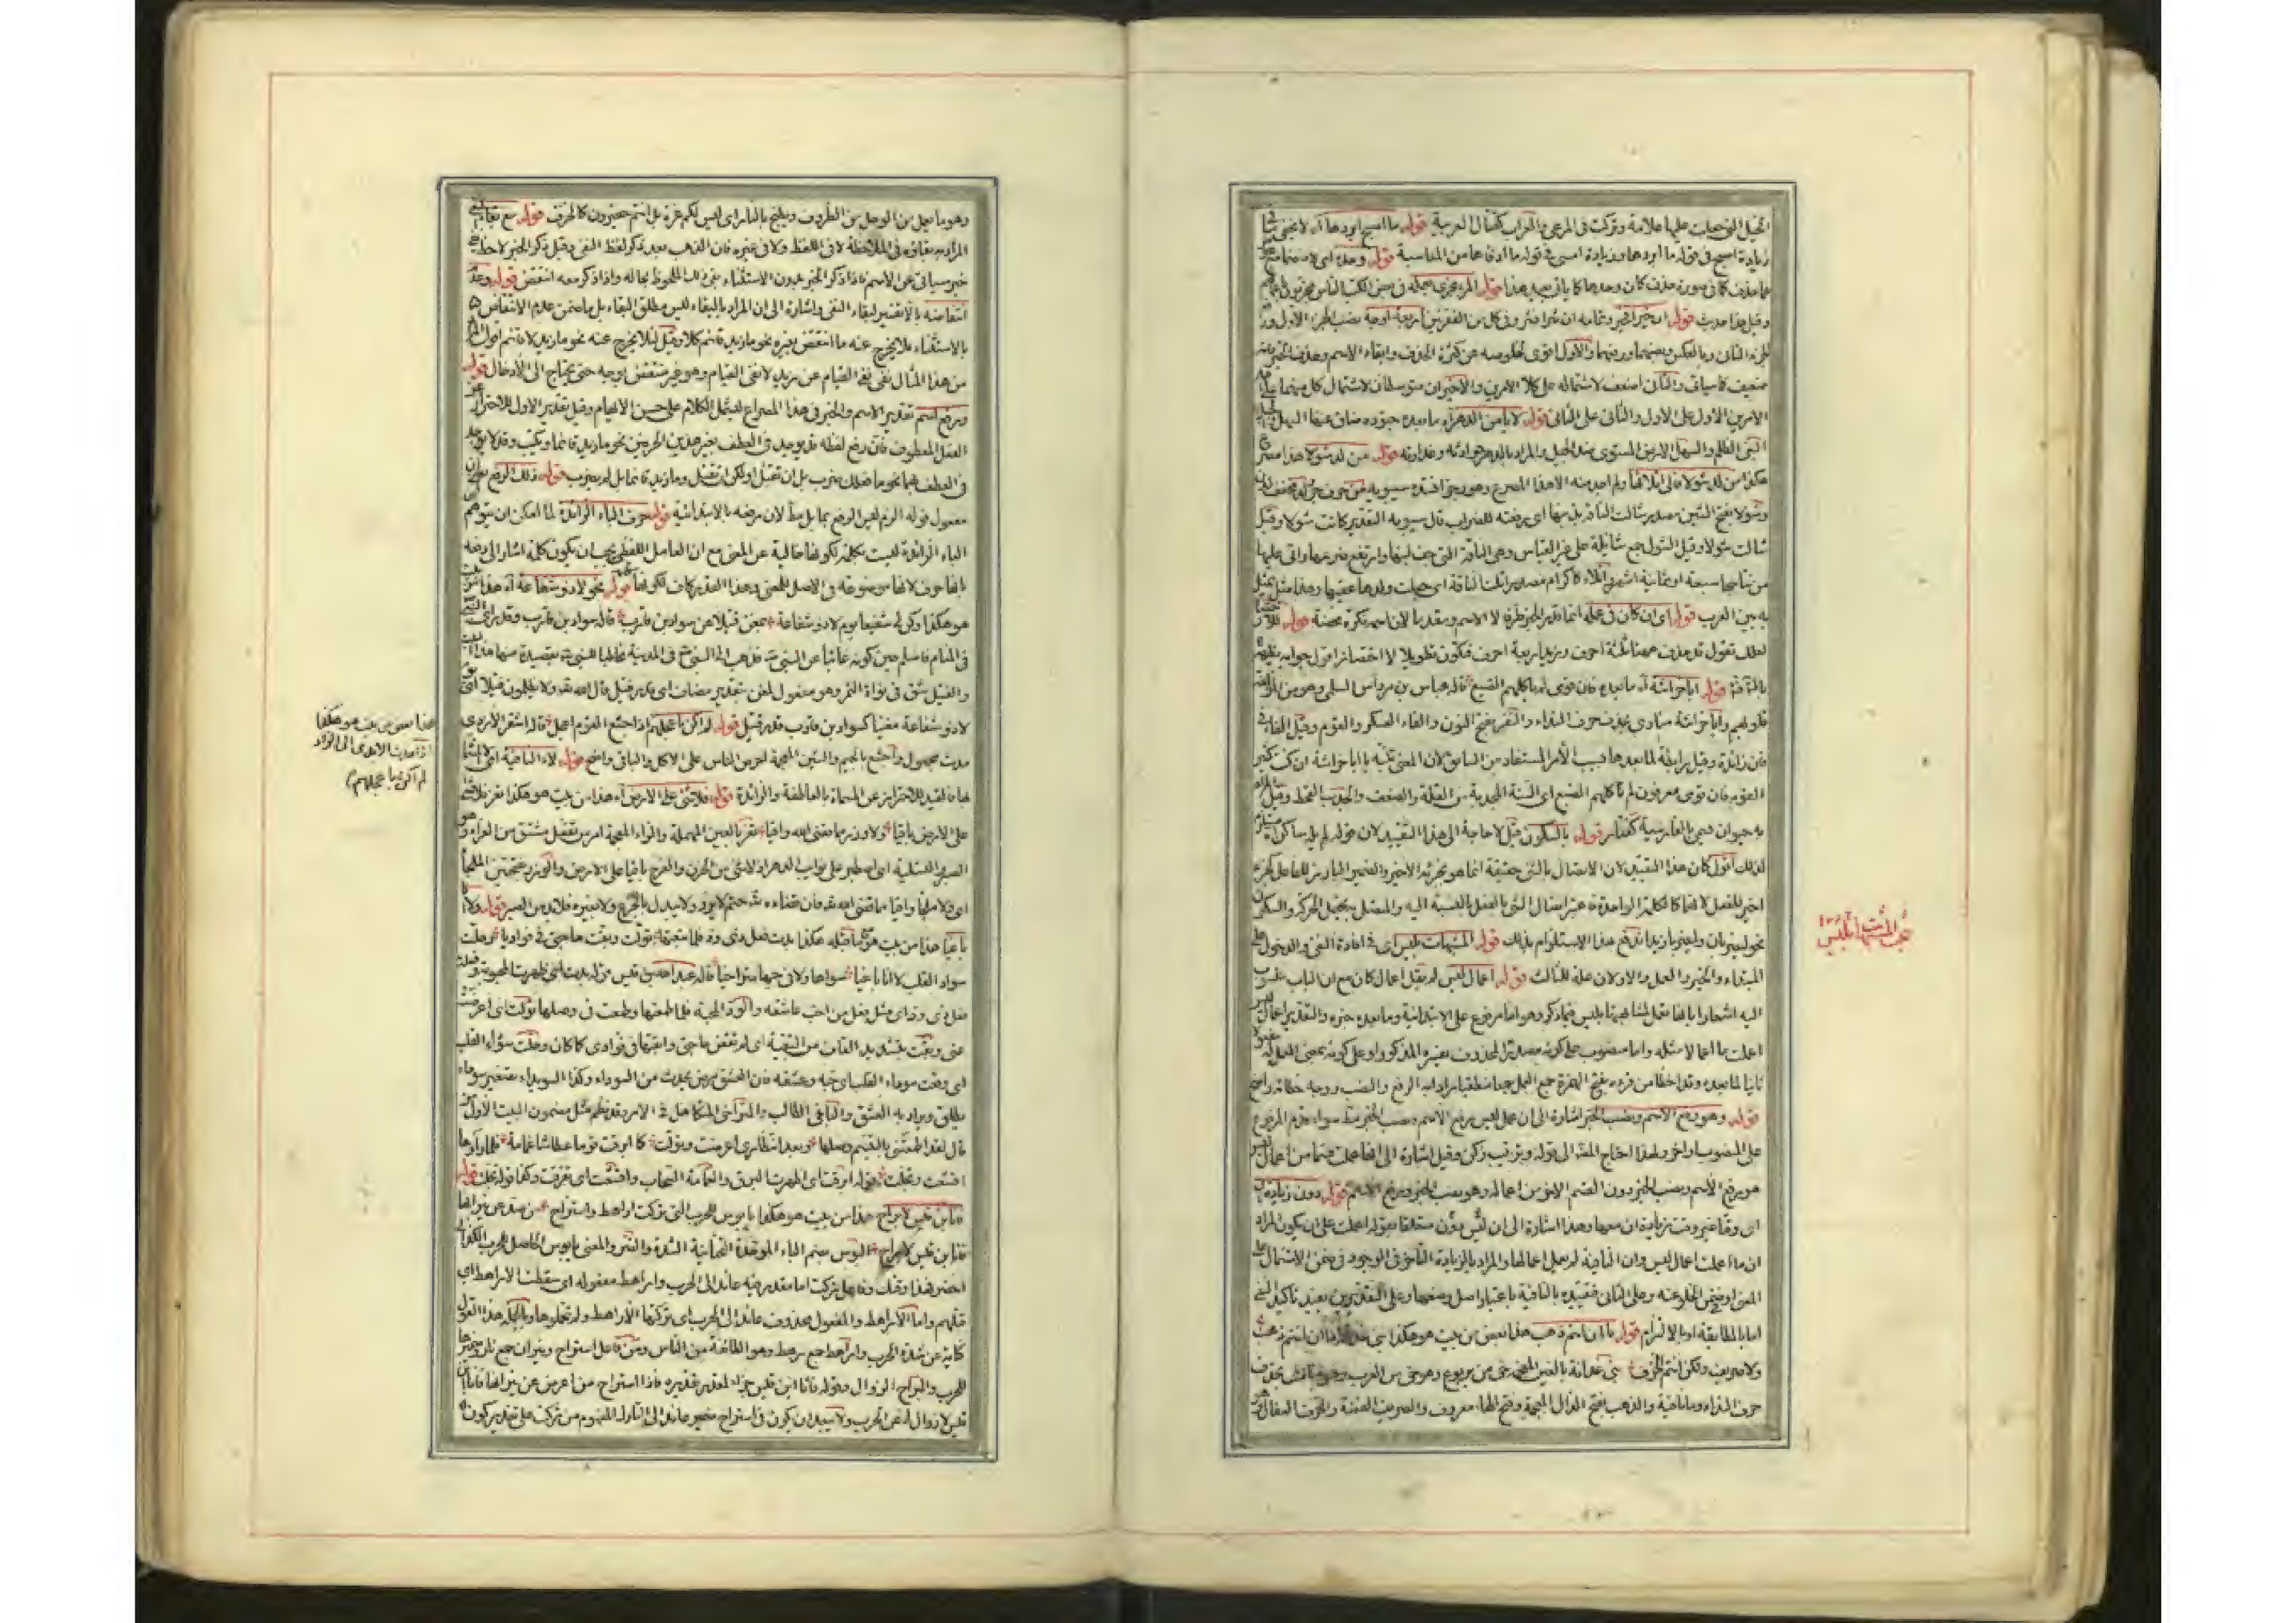 الخيل التي جعلت عليها علامة وتركت في المرعى والعراب كفتال العربية قوله ما اصبح ابردها آه لا يخفى
زيادة اصبح في قوله ما ابردها وزيادة امسى في قوله ما ادفاها من المناسبة قوله وحده اى لا
مما حذف كما في صورة حذف كان وحدها كما ياتى بعيد هذا قوله المرء مجزى بعمله في بعض الكتب الناس مجزيون
وقيل هذا حديث قوله ان خيرا فخير وتمامه ان شرا فشر وفي كل من الفقرتين اربعة اوجه نصب الجزء الاول ورفع
الجزء الثانى وبالعكس ونصبهما ورفعهما والاول اقوى لخلوصه عن كثرة الحذف وابقاء الاسم وحذف الخبر
ضعيف كما سياتى والثانى اضعف لاشتماله على كلا الامرين والاخيران متوسطان لاشتمال كل منهما على
الامرين الاول على الاول والثانى على الثانى قوله لا يامن الدهر آه ما بعده جنوده ضاق عنها السهل والجبل
البغى الظلم والسهل الارض المستوى ضد الجبل والمراد بالدهر حوادثه وغدراته قوله من لد شولا هذا
هكذا من لد شولا فالى اتلائها ولم اجد منه الا هذا المصرع وهو رجز انشده سيبويه
وشولا بفتح الشين مصدر شالت الناقة بذنبها اى رفعته للضراب قال سيبويه التقدير كانت شولا وقيل
شالت شولا وقيل الشول جمع شائلة على غير القياس وهى الناقة التى جف لبنها وارتفع ضرعها واتى عليها
من نتاجها سبعة او ثمانية اشهر واتلاء كاكرام مصدر اتلت الناقة اى جعلت ولدها عقيبها وهذا مثل
به بين العرب قوله اى ان كان في عمله انما قدر الخبر ظرفا لا الاسم ومقدما لان اسمه نكرة محضة قوله
لعلك تقول قد حذف ههنا ثلثة احرف وزيد اربعة احرف فتكون تطويلا لا اختصارا اقول جوابه
قوله ابا خراشة آه ما بعده فان قومى لم ياكلهم الضبع قاله عباس بن مرداس السلمى وهو من المؤلفة
قلوبهم وابا خراشة منادى بحذف حرف النداء والنفر بفتح النون والفاء العسكر والقوم وقيل الفاء في
فان زائدة وقيل رابطة لما بعدها سببا لأمر المستفاد من السابق لان المعنى تنبه يا ابا خراشة ان كنت كثير
القوم فان قومى معرفون لم تاكلهم الضبع اى السنة المجدبة من القلة والضعف والجدب القحط وقيل
به حيوان يسمى بالفارسية كفتار قوله بالسكون قيل لا حاجة الى هذا التقييد لان قوله لم يلى ساكن
لذلك اقول كان هذا التقييد لان الاتصال بالشئ حقيقة انما هو بجزئه الاخير والضمير البارز للفاعل كجزء
اخير للفعل لانهما كالكلمة الواحدة
نحو ليضربان وليضربا زيدا قوله المشبهات بليس اى في افادة النفى والدخول على
المبتداء والخبر والعمل والاولان علة للثالث قوله اعمال ليس لم يقل اعمال كان مع ان الباب
اليه اشعارا بانها تعمل لمشابهتها بليس فيما ذكر وهو اما مرفوع على الابتدائية وما بعده خبره والتقدير اعمال
اعملت ما اعمالا مثله واما منصوب على كونه مصدرا لمحذوف يفسره المذكور او على كونه بمعنى العمل
ثانيا لما بعده وقد اخطا من قرءه بفتح الهمزة جمع العمل
قوله وهو رفع الاسم ونصب الخبر اشارة الى ان عمل ليس برفع الاسم ونصب الخبر سواء قدم المرفوع
على المنصوب او اخر ولهذا احتاج المصنف الى قوله وترتيب زكن وقيل اشارة الى انها عملت قسما من اعمال ليس
هو رفع الاسم ونصب الخبر دون القسم الاخر من اعماله وهو نصب الخبر ورفع الاسم قوله دون زيادة ان
اى وقتا غير وقت زيادة ان معها وهذا اشارة الى ان ليس دون متعلقا بقوله اعملت على ان يكون المراد
ان ما اعملت اعمال ليس وان النافية لم يعمل اعمالها والمراد بالزيادة التاخر في الوجود
المعنى او ضمن الخلو عنه وعلى الثانى فتقييده بالنافية باعتبار اصل وضعها وعلى التقديرين يفيد تاكيد
اما بالمطابقة او بالالتزام قوله ما ان انتم ذهب هذا بعض من بيت هو هكذا بنى غدانة ما ان انتم ذهب
ولا صريف ولكن انتم الخزف بنى غدانة بالغين المعجمة حى من يربوع وهو حى من العرب وهو منادى بحذف
حرف النداء وما نافية والذهب بفتح الذال المعجمة وفتح الهاء معروف والصريف الفضة والخزف السفال
بحث المشبهات بليس
وهو ما يعمل من الوحل من الظروف ويطبخ بالنار اى ليس لكم عزة بل انتم حقيرون كالخزف قوله مع بقاء النفى
المراد به بقاؤه في الملاحظة لا في اللفظ ولا في غيره فان الذهب بعد ذكر لفظ النفى وقبل ذكر الخبر لاحظ
خبر سياتى عن الاسم فاذا ذكر الخبر بدون الاستثناء بقى ذلك الملحوظ بحاله واذا ذكر معه انتقض قوله وعدم
انتقاضه بالا تفسير لبقاء النفى واشارة الى ان المراد بالبقاء ليس مطلق البقاء بل ما ضمن عدم الانتقاض
بالاستثناء فلا يخرج عنه ما انتقض بغيره نحو ما زيد قائم كلا وقيل لئلا يخرج عنه نحو ما زيد لا قائم اقول
من هذا المثال نفى نفى القيام عن زيد لا نفى القيام وهو غير منتقض بوجه حتى يحتاج الى الادخال قوله
ورفع اسم تقدير الاسم والخبر في هذا المصراع ليشمل الكلام على حسن الايهام وقيل تقدير الاول للاحتراز عن
الفعل المعطوف فان رفع لفظه قد يوجد في العطف بغير هذين الحرفين نحو ما زيد قائما ويكتب وقد لا يوجد
في العطف بهما نحو ما ضلك يضرب بل ان تقتل او لكن ان تقتل وما زيد قائما بل لم يضرب قوله ذلك الرفع
مفعول قوله الزم لفعل الرفع بما بل بطل لان رفعه بالابتدائية قوله حرف الباء الزائدة لما امكن ان يتوهم
الباء الزائدة ليست بكلمة لكونها خالية عن المعنى مع ان العامل اللفظى يجب ان يكون كلمة اشار الى دفعه
بانها حرف لانها موضوعة في الاصل للمعنى وهذا القدر كاف لكونها قوله نحو لا ذو شفاعة آه هذا من بيت
هو هكذا وكن لى شفيعا يوم لا ذو شفاعة بمغن فتيلا عن سواد بن قارب قاله سواد بن قارب وقد راى النبى
في المنام فاسلم حين كونه غائبا عن النبى فذهب الى النبى في المدينة مخاطبا للنبى بقصيدة منها هذا البيت
والفتيل شق في نواة التمر وهو مفعول لمغن بتقدير مضاف اى قدر فتيل قال الله تعالى ولا يظلمون فتيلا اى
لا ذو شفاعة مغنيا لسواد بن قارب قدر فتيل قوله لم اكن باعجلهم اذا اجشع القوم اعجل قاله اشنفر الازدى
مدت مجهول واجشع بالجيم والشين المعجمة احرص الناس على الاكل والباقى واضح قوله لاء النافية
لها فالقيد للاحتراز عن المسماة بالعاطفة والزائدة قوله فلا شئ على الارض آه هذا من بيت هو هكذا تعز فلا شئ
على الارض باقيا ولا وزر مما قضى الله واقيا تعز بالعين المهملة والزاء المعجمة امر من تفعل مشتق من العزاء وهو
الصبر والتسلية اى اصطبر على نوايب الدهر اذ لا شئ من الحزن والفرح باقيا على الارض والوزر بفتحتين الملجأ
اى ولا ملجأ واقيا مما قضى الله فان قضاءه حتم لا يرد ولا يبدل بالجزع ولا بغيره فلا بد من الصبر قوله ولا انا
باغيا هذا من بيت هو ما قبله هكذا بدت فعل ذى ود فلما تبعتها تولت وبقت حاجتى في فواديا وحلت
سواد القلب لا انا باغيا سواها ولا في حبها متراخيا قاله عبد الله بن قيس قوله بدت اى ظهرت المحبوبة وفعلت
فعل ذى ود اى مثل فعل من احب عاشقه والود المحبة فلما طمعتها وطمعت في وصلها تولت اى اعرضت
عنى وبقت بتشديد القاف من التبقية اى لم تقض حاجتى وابقتها في فوادى كما كان وحلت سواد القلب
اى وقعت سوداء القلب اى حبه وعشقه فان العشق مرض يحدث من السوداء وكذا السويداء بتصغير سوداء
يطلق ويراد به العشق والباغى الطالب والمتراخى المتكاهل في الامر وقد نظم مثل مضمون البيت الاول من
قال لقد اطمعتنى بالتبسم وصلها وبعد انتظارى اعرضت وتولت كما ابرقت قوما عطاشا غمامة فلما راوها
اقشعت وتجلت قوله ابرقت اى اظهرت البرق والغمامة السحاب واقشعت اى تفرقت وكذا قوله تجلت قوله
فانا ابن قيس لا براح هذا من بيت هو هكذا يا بؤس للحرب التى تركت اراهط واستراح من صد عن نيرانها
فانا ابن قيس لا براح البؤس بضم الباء الموحدة التحتانية الشدة والضر والمعنى يا بؤس الحاصل للحرب الكذا
احضر فهذا وقتك وفاعل تركت اما مقدر فيه عائد الى الحرب واراهط مفعوله اى سقطت الاراهط اى
قتلهم واما الاراهط والمفعول محذوف عائد الى الحرب اى تركتها الاراهط ولم تحملوها وبالجملة هذا القول
كناية عن شدة الحرب واراهط جمع رهط وهو الطائفة من الناس ومن فاعل استراح ونيران جمع نار وضميرها
للحرب والبراح الزوال وقوله فانا ابن قيس جزاء لمقدر تقديره فاذا استراح من اعرض عن نيرانها فانا ابن
قيس لا زوال له عن الحرب ولا يبعد ان يكون في استراح ضمير عائد الى التارك المفهوم من تركت على تقدير كون
هذا بعض من بيت هو هكذا
اذا مدت الايدى الى الزاد
لم اكن باعجلهم